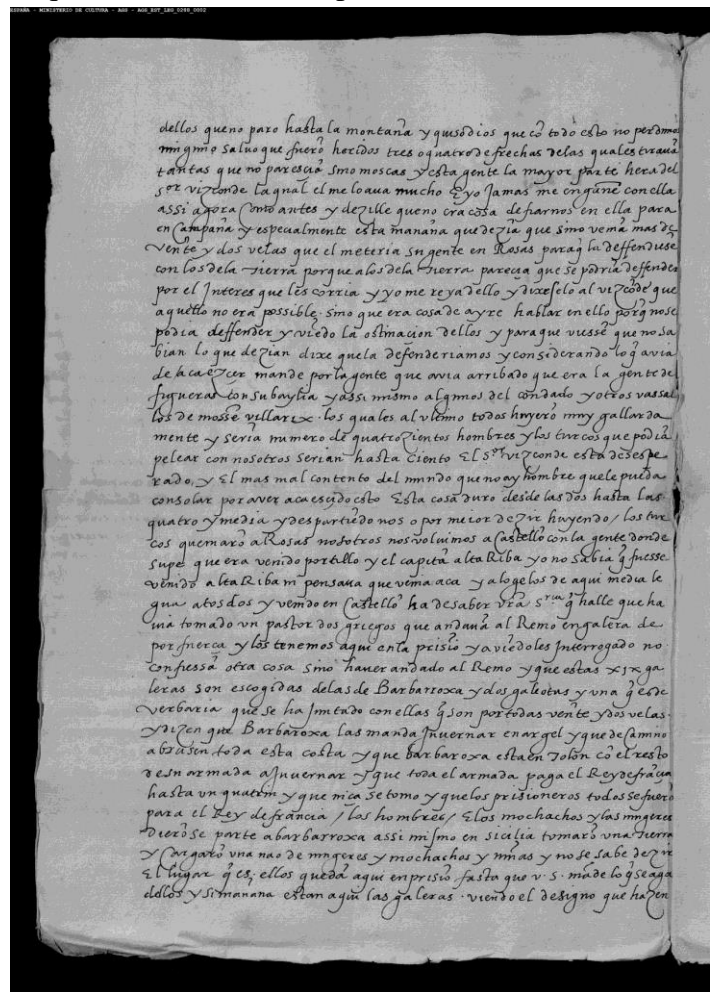 ESPAÑA - MINISTERIO DE CULTURA - AGS - AGS_EST_LEG_0288_0002
dellos que no paro hasta la montaña y quisodios que cō todo esto no perdimos
ningūno salvo que fuerō heridos tres o quatro de frechas delas quales tirauā
tantas que no parescia sino moscas y esta gente la mayor parte hera del
sor vizconde la qual el me loaua mucho E yo Jamas me engañe con ella
assi agora Como antes y dezille que no era cosa de fiarnos en ella para
en Campaña y especialmente esta mañana que dezia que sino venia mas de
vente y dos velas que el meteria su gente en Rosas paraq̄ la deffendiese
con los dela tierra porque a los dela tierra parecia que se podria deffender
por el Interes que les corria y yo me reya dello y dixeselo al vizcōde que
aquello no era possible. sino que era cosa de ayre hablar en ello porq̄ no se
podia deffender y viēdo la ostinacion dellos y para que viesse que no sa
bian lo que dezian dixe que la defenderiamos y considerando lo q̄ avia
de acaezcer mande por la gente que avia arribado que era la gente de
figueras con su baylia y assi mismo algunos del condado y otros vassal
los de mossē villarix. los quales al vltimo todos huyerō muy gallarda
mente y seria numero de quatrozientos hombres y los turcos que podiā
pelear con nosotros serian hasta Ciento El Sor vizconde esta desespe
rado, y El mas mal contento del mundo que no ay hombre que le pueda
consolar por aver acaescido esto Esta cosa duro desde las dos hasta las
quatro y media y despartiēdo nos o por meior dezir huyendo / los tur
cos quemarō a Rosas nosotros nos volvimos a Castellō con la gente donde
supe que era venido portillo y el capitā altaRiba yo no sabia q̄ fuesse
venido altaRiba ni pensaua que venia aca y alogelos de aqui media le
gua a tos dos y venido en Castellō ha de saber vrā sria q̄ halle que ha
uia tomado vn pastor dos griegos que andauā al Remo en galera de
por fuerca y los tenemos aqui en la prisiō y aviēdoles Interrogado no
confiessā otra cosa sino haver andado al Remo y que estas xix ga
leras son escogidas delas de Barbarroxa y dos galeotas y vna q̄ es de
verbaria que se ha Juntado con ellas q̄ son por todas vēte y dos velas.
y dizen que Barbaroxa las manda Jnuernar en argel y que de camino
abrasen toda esta costa y que barbaroxa esta en Tolōn cō el resto
de su armada a Jnuernar y que toda el armada paga el Rey de frācia
hasta un quatrin y que niça se tomo y que los prisioneros todos se fuerō
para el Rey de francia / los hombres / E los mochachos y las mugeres
dierōse parte a barbarroxa assi mismo en sicilia tomarō vna tierra
y Cargarō vna nao de mugeres y mochachos y niñas y no se sabe dezir
El lugar q̄ es; ellos quedā aqui en prisiō fasta que v. s. māde lo q̄ se aga
dellos y si mañana estan aqui las galeras. viendo el designo que hazen